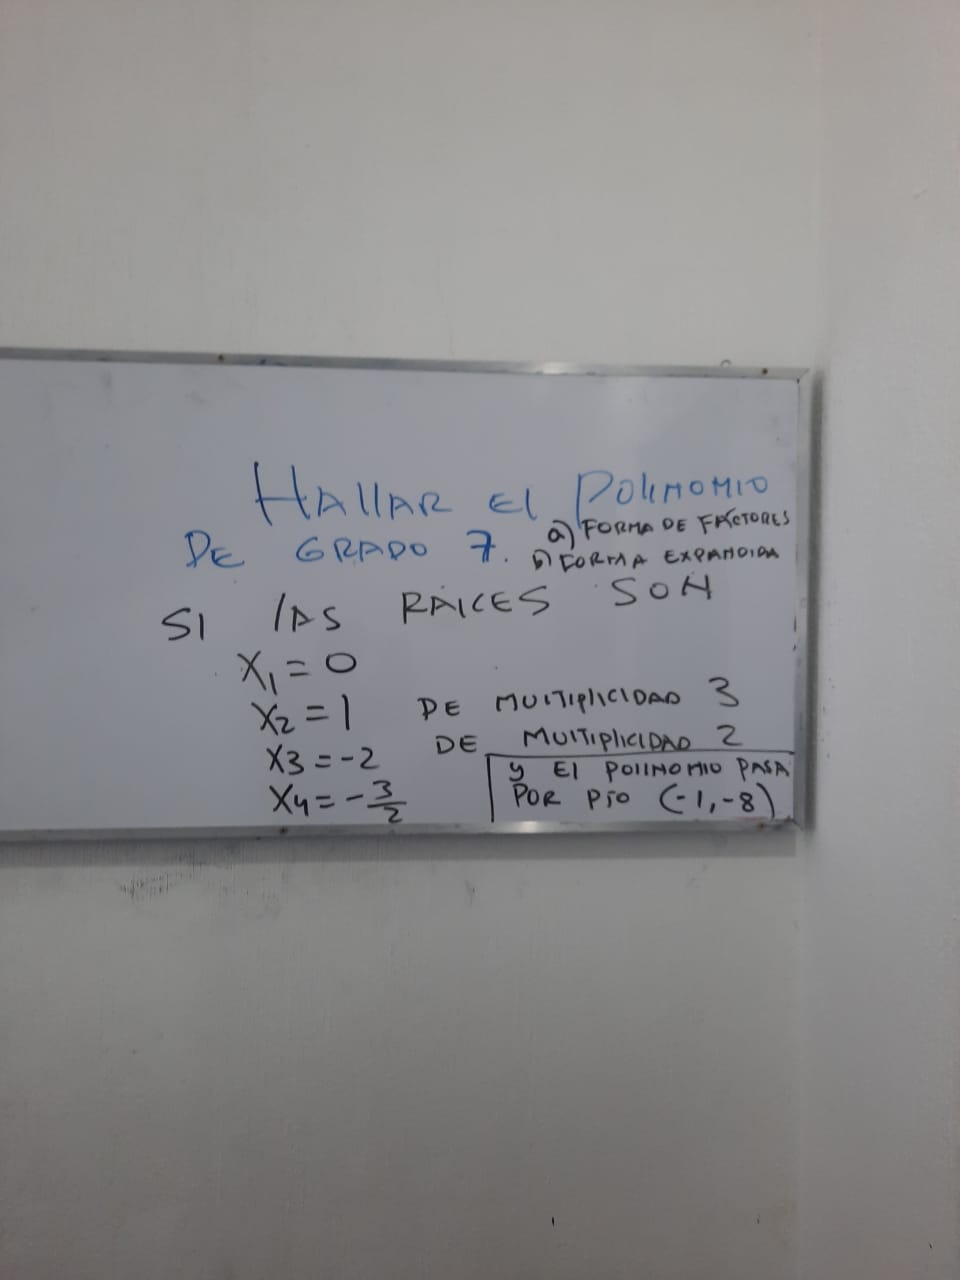 HALLAR EL POLINOMIO
DE GRADO 7. a) FORMA DE FACTORES
b) FORMA EXPANDIDA
SI LAS RAICES SON
X₁ = 0
X₂ = 1 DE MULTIPLICIDAD 3
X₃ = -2 DE MULTIPLICIDAD 2
X₄ = -3/2 y EL POLINOMIO PASA
POR PTO (-1,-8)